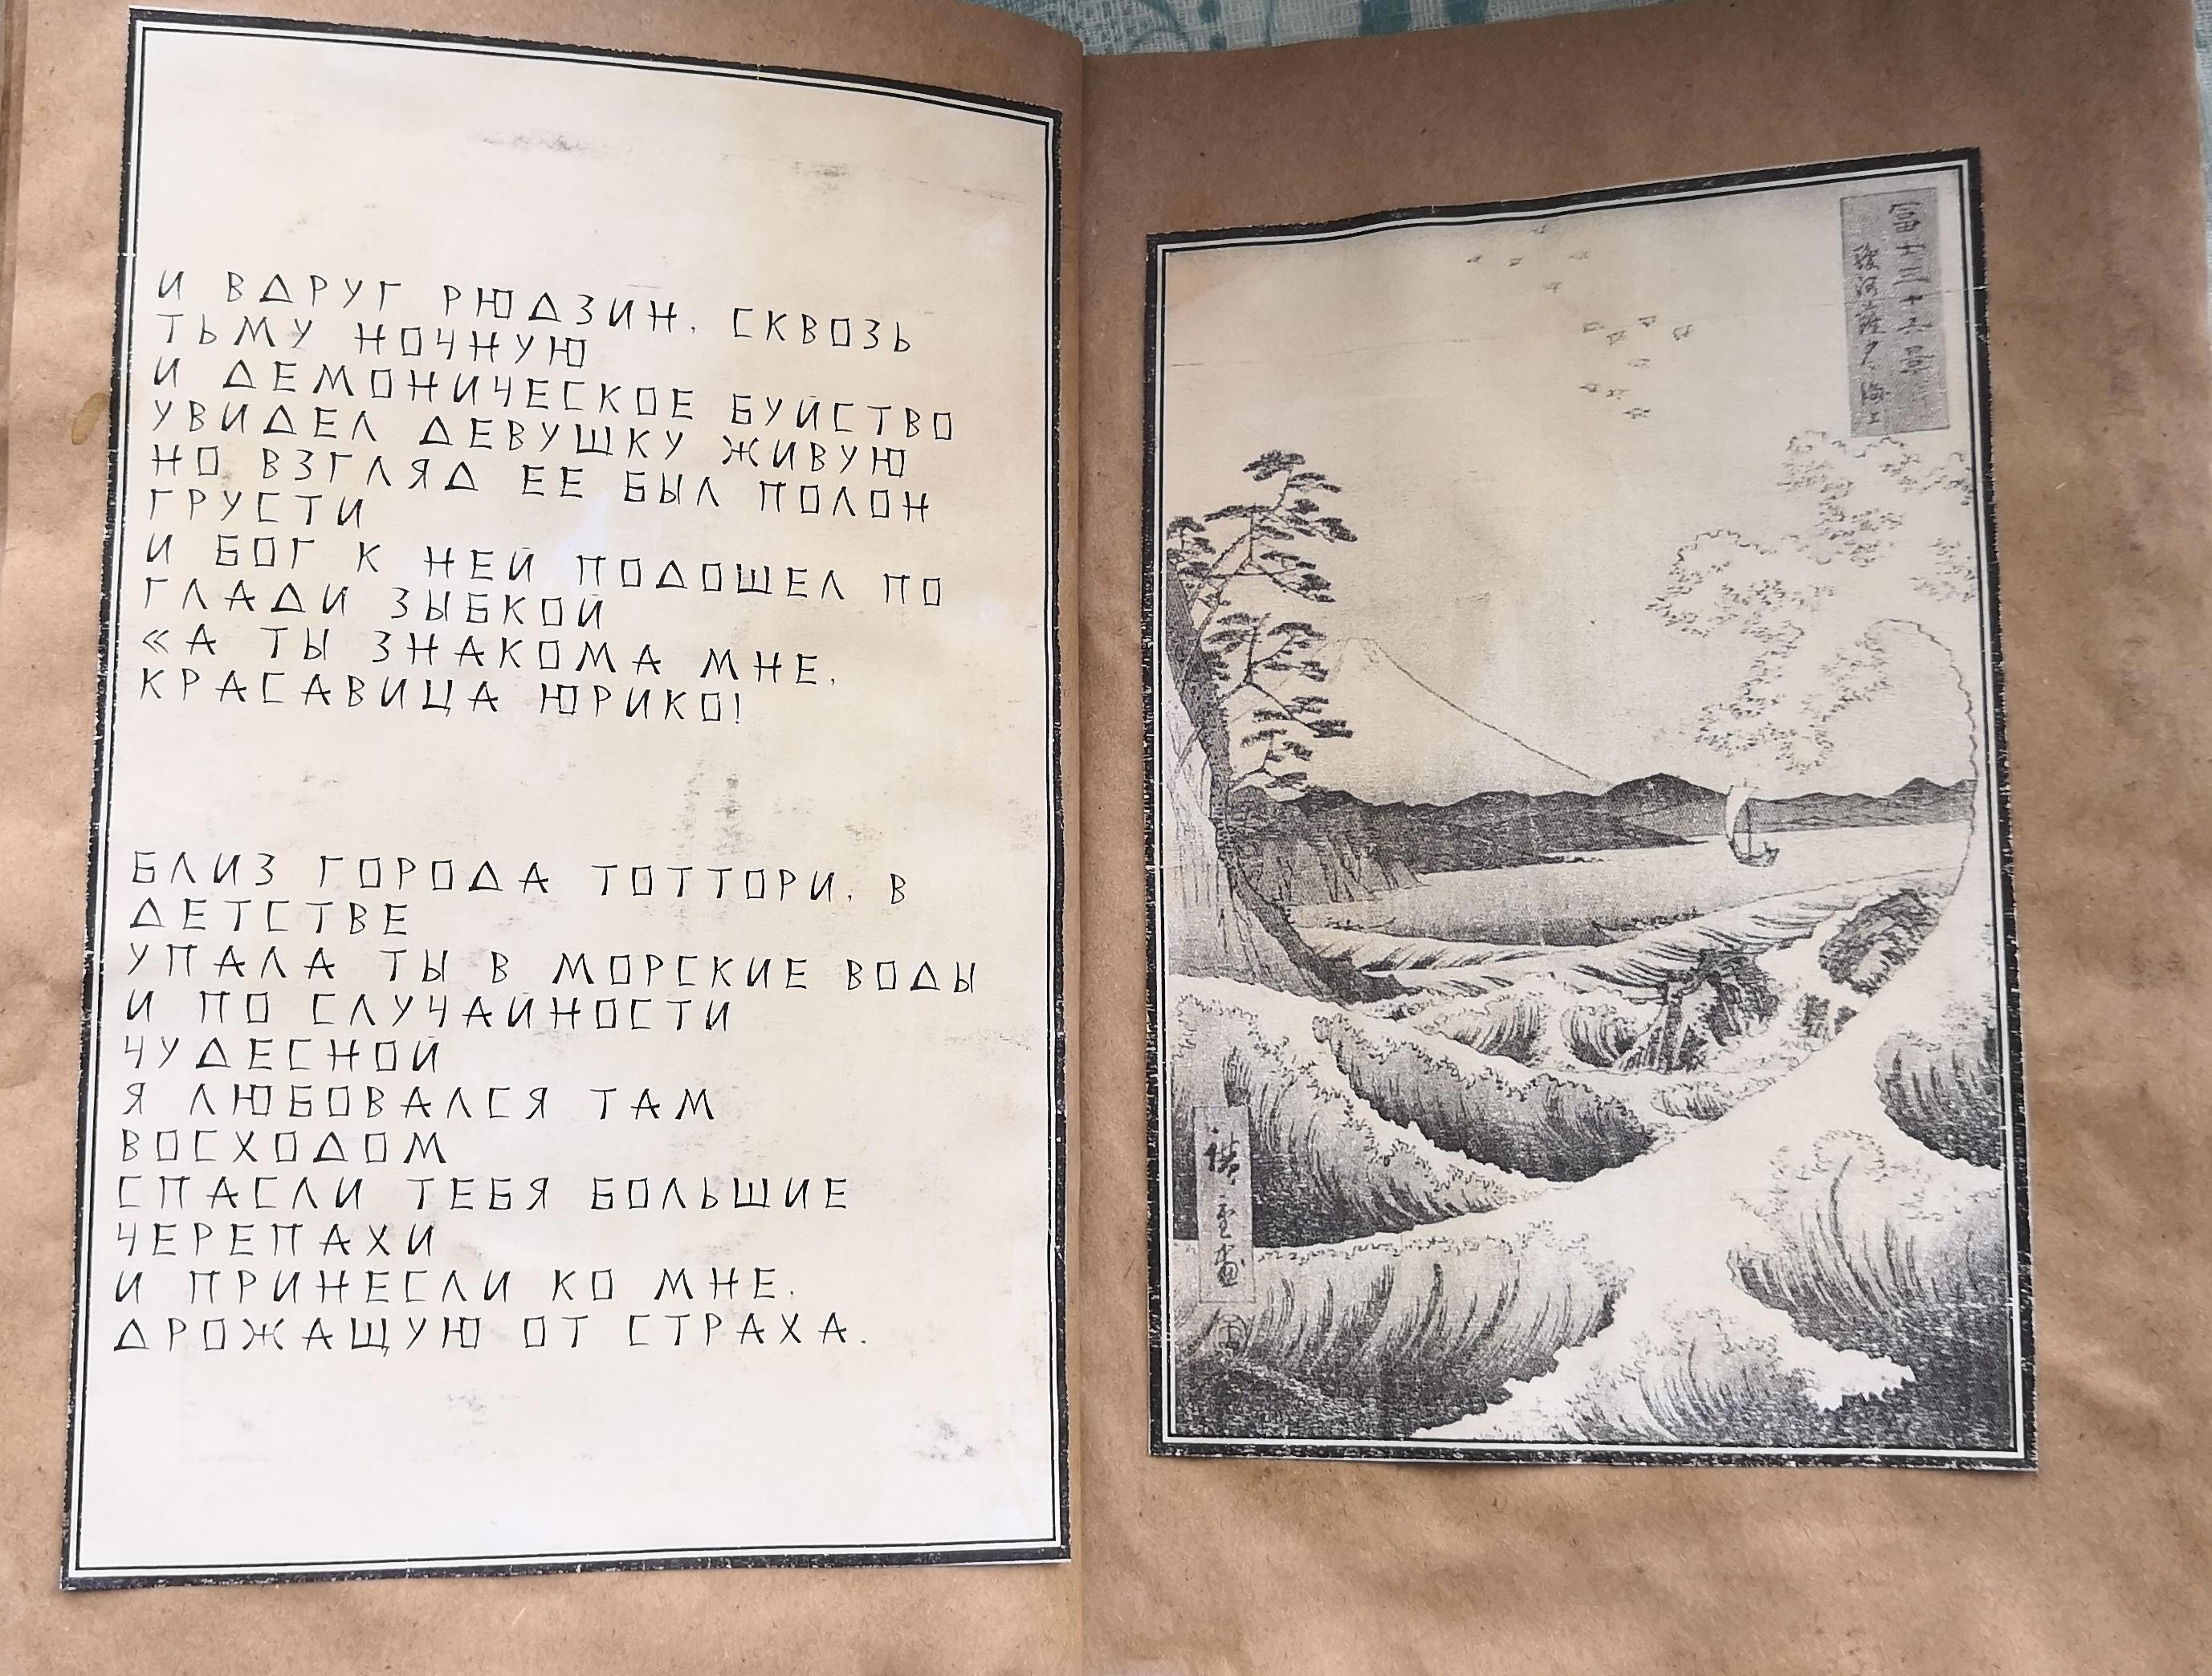 И ВДРУГ РЮДЗИН, СКВОЗЬ
ТЬМУ НОЧНУЮ
И ДЕМОНИЧЕСКОЕ БУЙСТВО
УВИДЕЛ ДЕВУШКУ ЖИВУЮ
НО ВЗГЛЯД ЕЕ БЫЛ ПОЛОН
ГРУСТИ
И БОГ К НЕЙ ПОДОШЕЛ ПО
ГЛАДИ ЗЫБКОЙ
«А ТЫ ЗНАКОМА МНЕ,
КРАСАВИЦА ЮРИКО!
БЛИЗ ГОРОДА ТОТТОРИ, В
ДЕТСТВЕ
УПАЛА ТЫ В МОРСКИЕ ВОДЫ
И ПО СЛУЧАЙНОСТИ
ЧУДЕСНОЙ
Я ЛЮБОВАЛСЯ ТАМ
ВОСХОДОМ
СПАСЛИ ТЕБЯ БОЛЬШИЕ
ЧЕРЕПАХИ
И ПРИНЕСЛИ КО МНЕ,
ДРОЖАЩУЮ ОТ СТРАХА.
冨士三十六景
駿河薩タ海上
廣重画